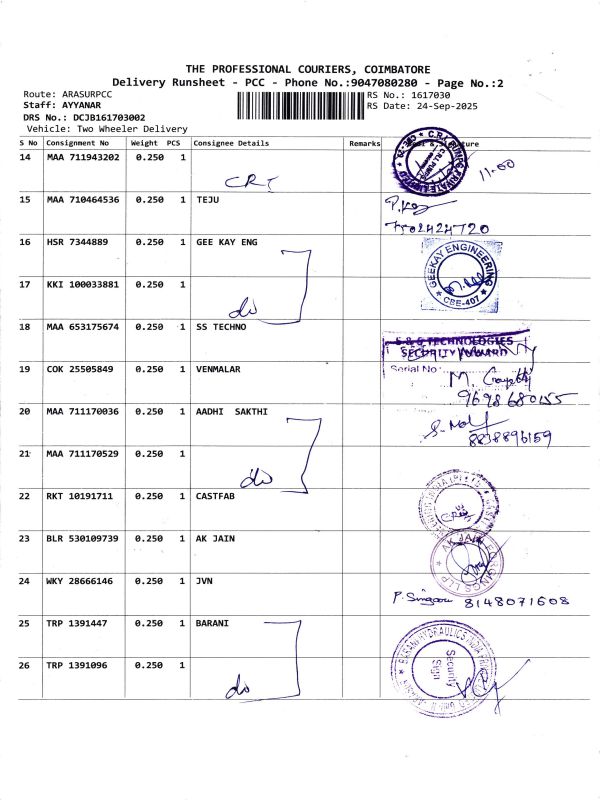 THE PROFESSIONAL COURIERS, COIMBATORE
Delivery Runsheet - PCC - Phone No.:9047080280 - Page No.:2
Route: ARASURPCC
RS No.: 1617030
Staff: AYYANAR
RS Date: 24-Sep-2025
DRS No.: DCJB161703002
Vehicle: Two Wheeler Delivery
S No Consignment No Weight PCS Consignee Details Remarks
14 MAA 711943202 0.250 1
11-00
15 MAA 710464536 0.250 1 TEJU
7502424720
16 HSR 7344889 0.250 1 GEE KAY ENG
GEEKAY ENGINEERING
CBE-407
17 KKI 100033881 0.250 1
do
18 MAA 653175674 0.250 1 SS TECHNO
S & G TECHNOLOGIES
SECURITY
Serial No
19 COK 25505849 0.250 1 VENMALAR
M.
9698680155
20 MAA 711170036 0.250 1 AADHI SAKTHI
8838896159
21 MAA 711170529 0.250 1
do
22 RKT 10191711 0.250 1 CASTFAB
23 BLR 530109739 0.250 1 AK JAIN
24 WKY 28666146 0.250 1 JVN
8148071608
25 TRP 1391447 0.250 1 BARANI
BARANI HYDRAULICS INDIA
Security
Sign
26 TRP 1391096 0.250 1
do